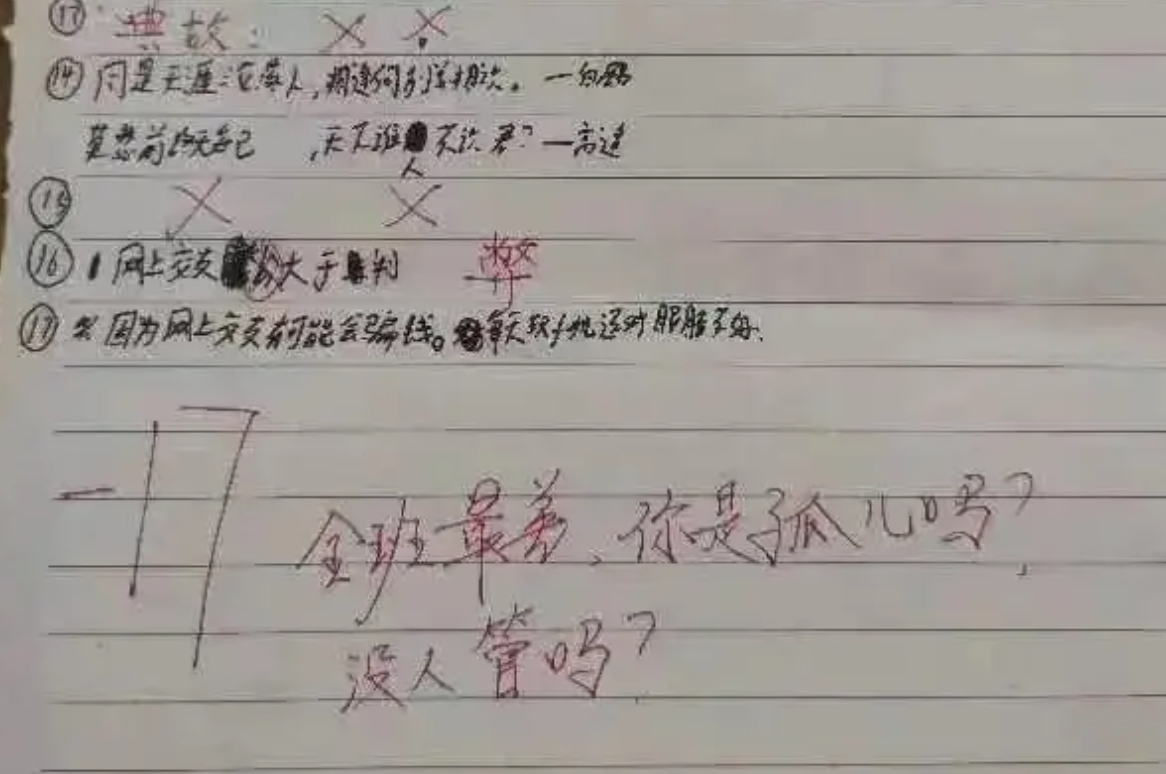 ⑰ 典故:
⑭ 同是天涯沦落人,相逢何必曾相识。—白居易
莫愁前路无知己,天下谁人不识君?—高适
⑮
⑯ 网上交友 大于 判 弊
⑰ 因为网上交友有可能会骗钱。 天玩手机还对眼睛不好.
-17
全班最差、你是孤儿吗?
没人管吗?